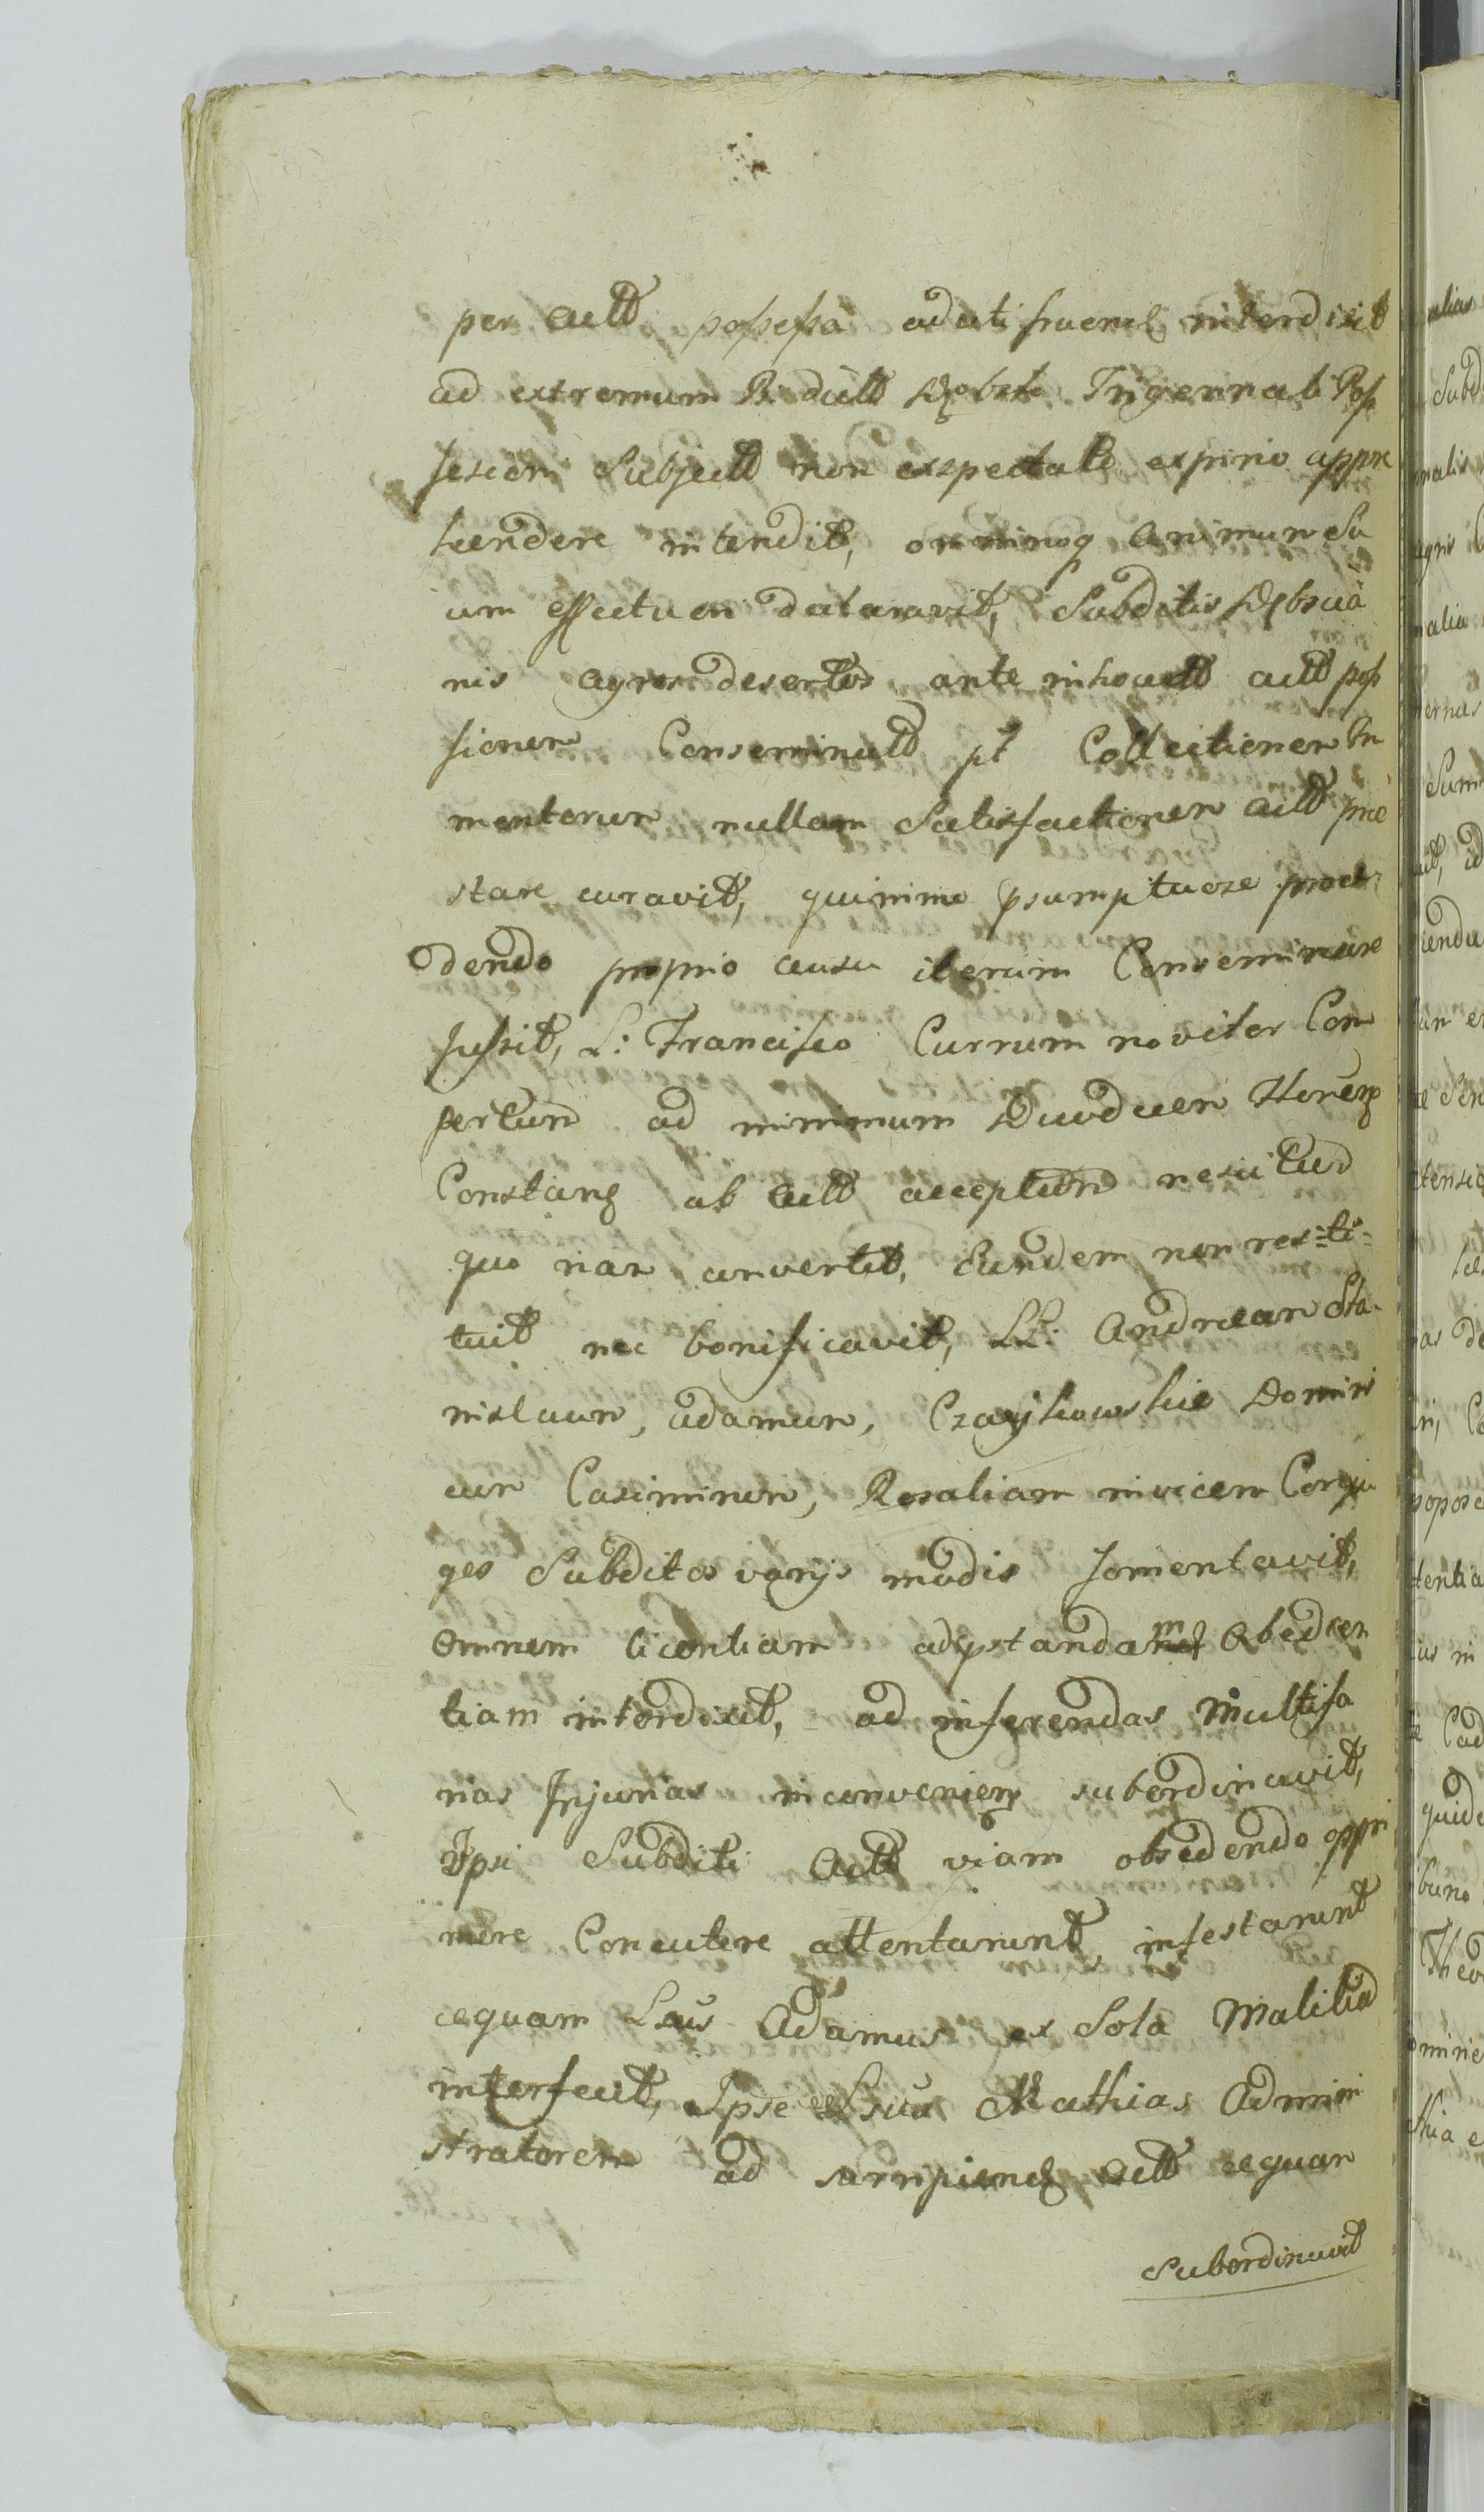 per actt possessa ad utifruend interdixit
ad extremum B. dictt Dębsk Trigennali Pos
sessioni Subjectt non exspectato expirio appre
hendere intendit, omninoq animum Su
um effectuen dataravit, Subditis Dębscia
nis agros desertos ante inhoactt actt poss
sionem Conseminatt pt Collectionem fru
mentorum nullam Satisfactionem actt præ
stare curavit, quinimo psumptuose proce
dendo proprio ausu iterum Conseminare
jussit, L: Francisco Currum noviter Com
pertum ad minimum Duodecem floreng
Constang ab actt acceptum
quo nan convertit, Eundem non res=ti=
tuit nec bonificavit, LL: Andream Sta
nislaum, adamum, Czaykowskie Domini
cum Casimirum, Rosaliam invicem Conju
ges Subditos varijs modis fomentavit,
Omnem licentiam adpstandamq Obedien
tiam interdixit, ad inferendas Multifa
rias Injurias inconveniens subordinavit,
Ipsi Subditi Actt viam obsedendo oppri
mere Concutere attentarunt, infestarunt
æquam Lsus Adamus ex Sola Malitia
interfecit, Ipse Lsus Mathias Admini
stratorem ad surripiend actt æquam
Subordinavit